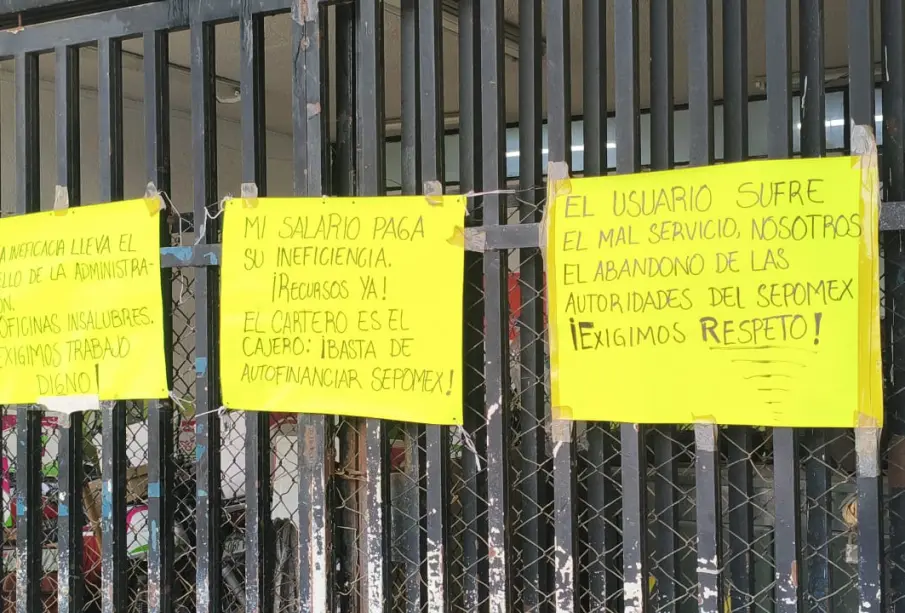 INEFICACIA LLEVA EL
DE LA ADMINISTRA-
OFICINAS INSALUBRES.
EXIGIMOS TRABAJO
DIGNO!
MI SALARIO PAGA
SU INEFICIENCIA.
¡RECURSOS YA!
EL CARTERO ES EL
CAJERO: ¡BASTA DE
AUTOFINANCIAR SEPOMEX!
EL USUARIO SUFRE
EL MAL SERVICIO, NOSOTROS
EL ABANDONO DE LAS
AUTORIDADES DEL SEPOMEX
¡EXIGIMOS RESPETO!